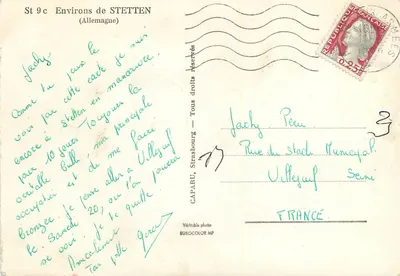 St 9 c Environs de STETTEN
(Allemagne)
Jacky,
Comme tu peux le
voir par cette carte je suis
encore à Stetten en manoeuvre
pour 10 jours. Toujours la
véritable bulle, ma principale
occupation est de me faire
bronzer. je pense aller à Villejuif
le Samedi 20, ou l'on pourra
se voir. je te quitte
Amicalement
Ton pote
CAPARU, Strasbourg — Tous droits réservés
Véritable photo
EUROCOLOR MP
ARMÉES
RÉPUBLIQUE FRANÇAISE
0,25
Jacky
Rue du Stade Municipal
Villejuif Seine
FRANCE